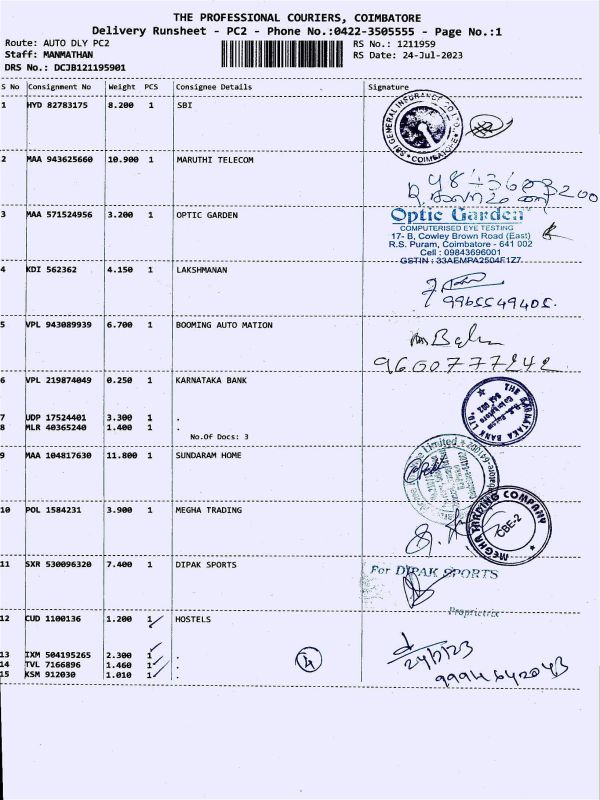 THE PROFESSIONAL COURIERS, COIMBATORE
Delivery Runsheet - PC2 - Phone No.:0422-3505555 - Page No.:1
Route: AUTO DLY PC2 RS No.: 1211959
Staff: MANMATHAN RS Date: 24-Jul-2023
DRS No.: DCJB121195901
S No Consignment No Weight PCS Consignee Details Signature
1 HYD 82783175 8.200 1 SBI
SBI GENERAL INSURANCE CO LTD. COIMBATORE
2 MAA 943625660 10.900 1 MARUTHI TELECOM
9843603200
3 MAA 571524956 3.200 1 OPTIC GARDEN
Optic Garden
COMPUTERISED EYE TESTING
17- B, Cowley Brown Road (East)
R.S. Puram, Coimbatore - 641 002
Cell : 09843696001
GSTIN : 33AEMPA2504F1Z7
4 KDI 562362 4.150 1 LAKSHMANAN
9965549405.
5 VPL 943089939 6.700 1 BOOMING AUTO MATION
9600777242
6 VPL 219874049 0.250 1 KARNATAKA BANK
THE KARNATAKA BANK LTD.
7 UDP 17524401 3.300 1 .
8 MLR 40365240 1.400 1 .
No.Of Docs: 3
9 MAA 104817630 11.800 1 SUNDARAM HOME
Limited
10 POL 1584231 3.900 1 MEGHA TRADING
MEGHA TRADING COMPANY
CBE-2
11 SXR 530096320 7.400 1 DIPAK SPORTS
For DIPAK SPORTS
Proprietrix
12 CUD 1100136 1.200 1 HOSTELS
13 IXM 504195265 2.300 1 .
14 TVL 7166896 1.460 1 .
15 KSM 912030 1.010 1 .
4
24/7/23
9994642043